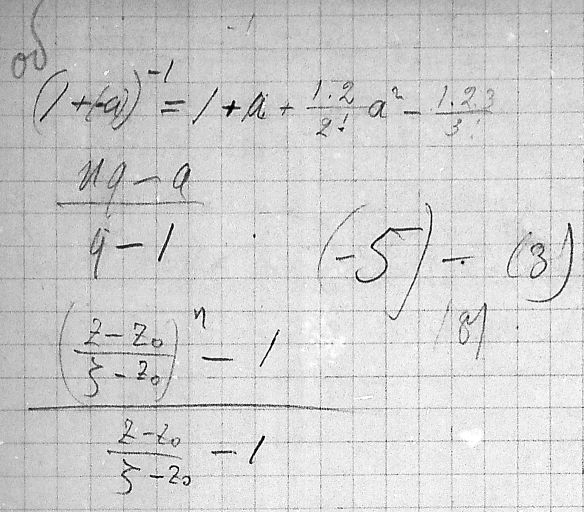 об
(1+(-a))^{-1} = 1 + a + \frac{1.2}{2!} a^2 - \frac{1.2.3}{3!}
\frac{uq - a}{q - 1}
(-5) - (3)
|8|
\frac{\left(\frac{z - z_0}{ζ - z_0}\right)^n - 1}{\frac{z - z_0}{ζ - z_0} - 1}